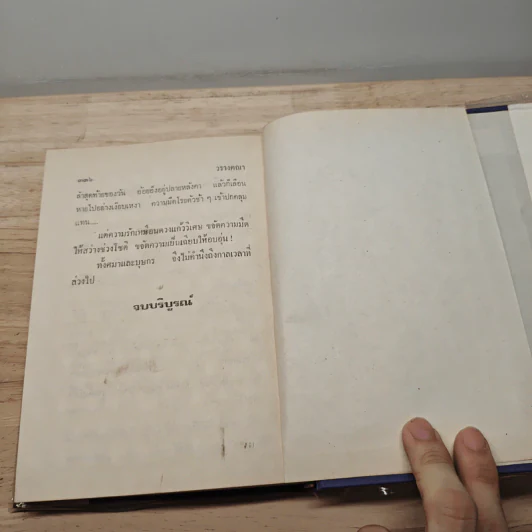 ๑๗๖ วรรงคณา
ลำสุดท้ายของวัน อ้อยอิ่งอยู่ปลายหลังคา แล้วก็เลือน
หายไปอย่างเงียบเหงา ความมืดโรยตัวช้า ๆ เข้าปกคลุม
แทน....
แต่ความรักเหมือนความเก้ววิเศษ ขจัดความมืด
ให้สว่างช่วงโชติ ขจัดความเย็นเฉียบให้อบอุ่น !
ทั้งศมาและบุษกร จึงไม่คำนึงถึงกาลเวลาที่
ล่วงไป
จบบริบูรณ์